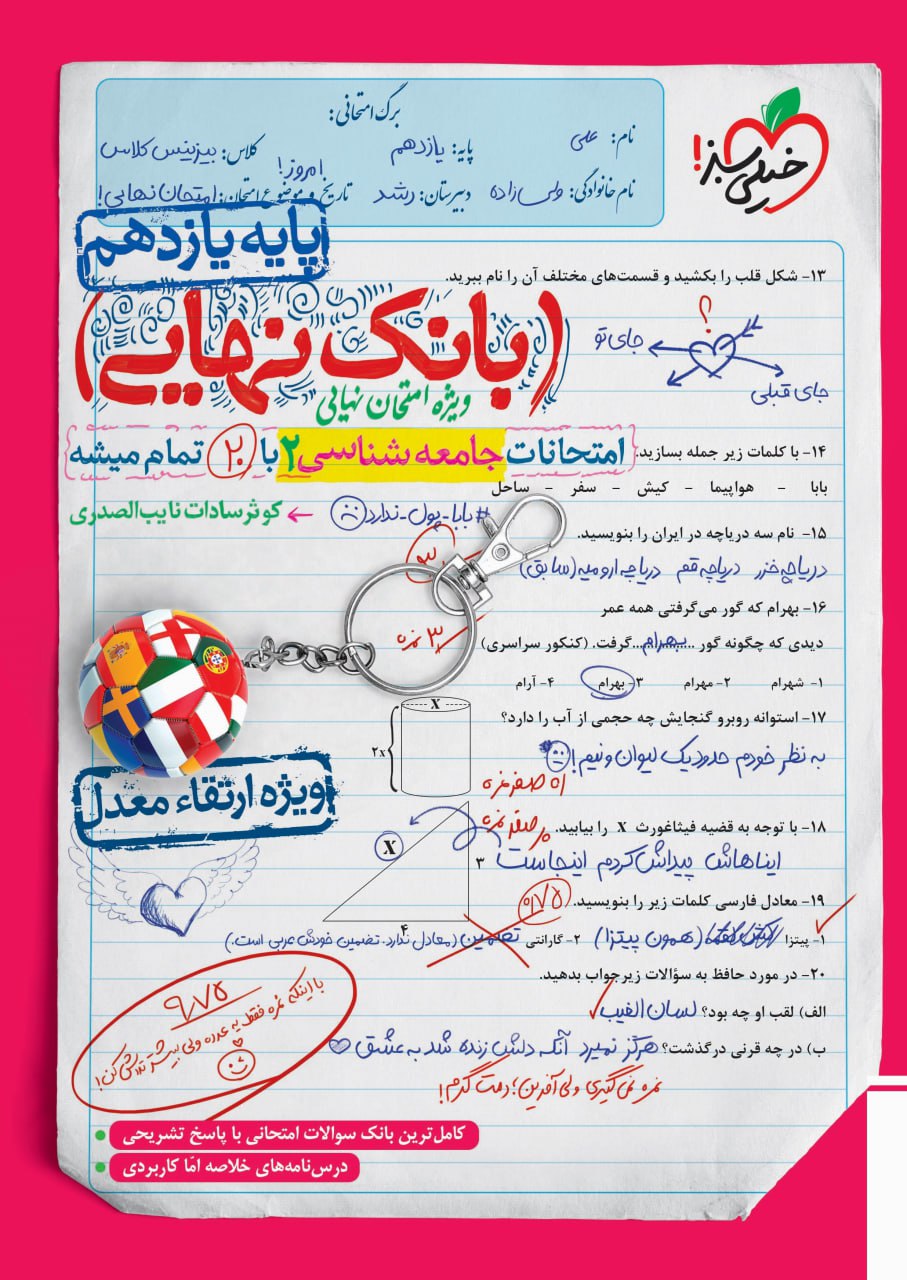 خیلی سبز!
برگ امتحانی:
نام: علی
پایه: یازدهم
کلاس: بیزینس کلاس
نام خانوادگی: ولی زاده
دبیرستان: رشد
تاریخ و موضوع امتحان: امتحان نهایی!
امروز!
پایه یازدهم
(بانک نهایی)
ویژه امتحان نهایی
امتحانات جامعه شناسی ۲ با ۲۰ تمام میشه
کوثر سادات نایب‌الصدری
۱۳- شکل قلب را بکشید و قسمت‌های مختلف آن را نام ببرید.
؟
جای تو
جای قبلی
۱۴- با کلمات زیر جمله بسازید.
بابا - هواپیما - کیش - سفر - ساحل
#بابا-پول-ندارد
۱۵- نام سه دریاچه در ایران را بنویسید.
دریاچه خزر دریاچه قم دریاچه ارومیه (سابق)
۱۶- بهرام که گور می‌گرفتی همه عمر
دیدی که چگونه گور ...بهرام... گرفت. (کنکور سراسری)
۳ نمره
۱- شهرام ۲- مهرام ۳- بهرام ۴- آرام
۱۷- استوانه روبرو گنجایش چه حجمی از آب را دارد؟
X
2x
به نظر خودم حدود یک لیوان و نیم!
اه صفر نمره
ویژه ارتقاء معدل
۱۸- با توجه به قضیه فیثاغورث X را بیابید.
صفر نمره
X
۳
۴
ایناهاش پیداش کردم اینجاست
۱۹- معادل فارسی کلمات زیر را بنویسید.
۰/۷۵
۱- پیتزا (همون پیتزا) ۲- گارانتی تضمین (معادل ندارد. تضمین خودش عربی است.)
۲۰- در مورد حافظ به سؤالات زیر جواب بدهید.
الف) لقب او چه بود؟ لسان الغیب
ب) در چه قرنی درگذشت؟ هرگز نمیرد آنکه دلش زنده شد به عشق
نمره نمی‌گیری ولی آفرین؛ دمت گرم!
۹/۷۵
با اینکه نمره فقط یه عدده ولی بیشتر تلاش کن!
کامل‌ترین بانک سوالات امتحانی با پاسخ تشریحی
درس‌نامه‌های خلاصه امّا کاربردی